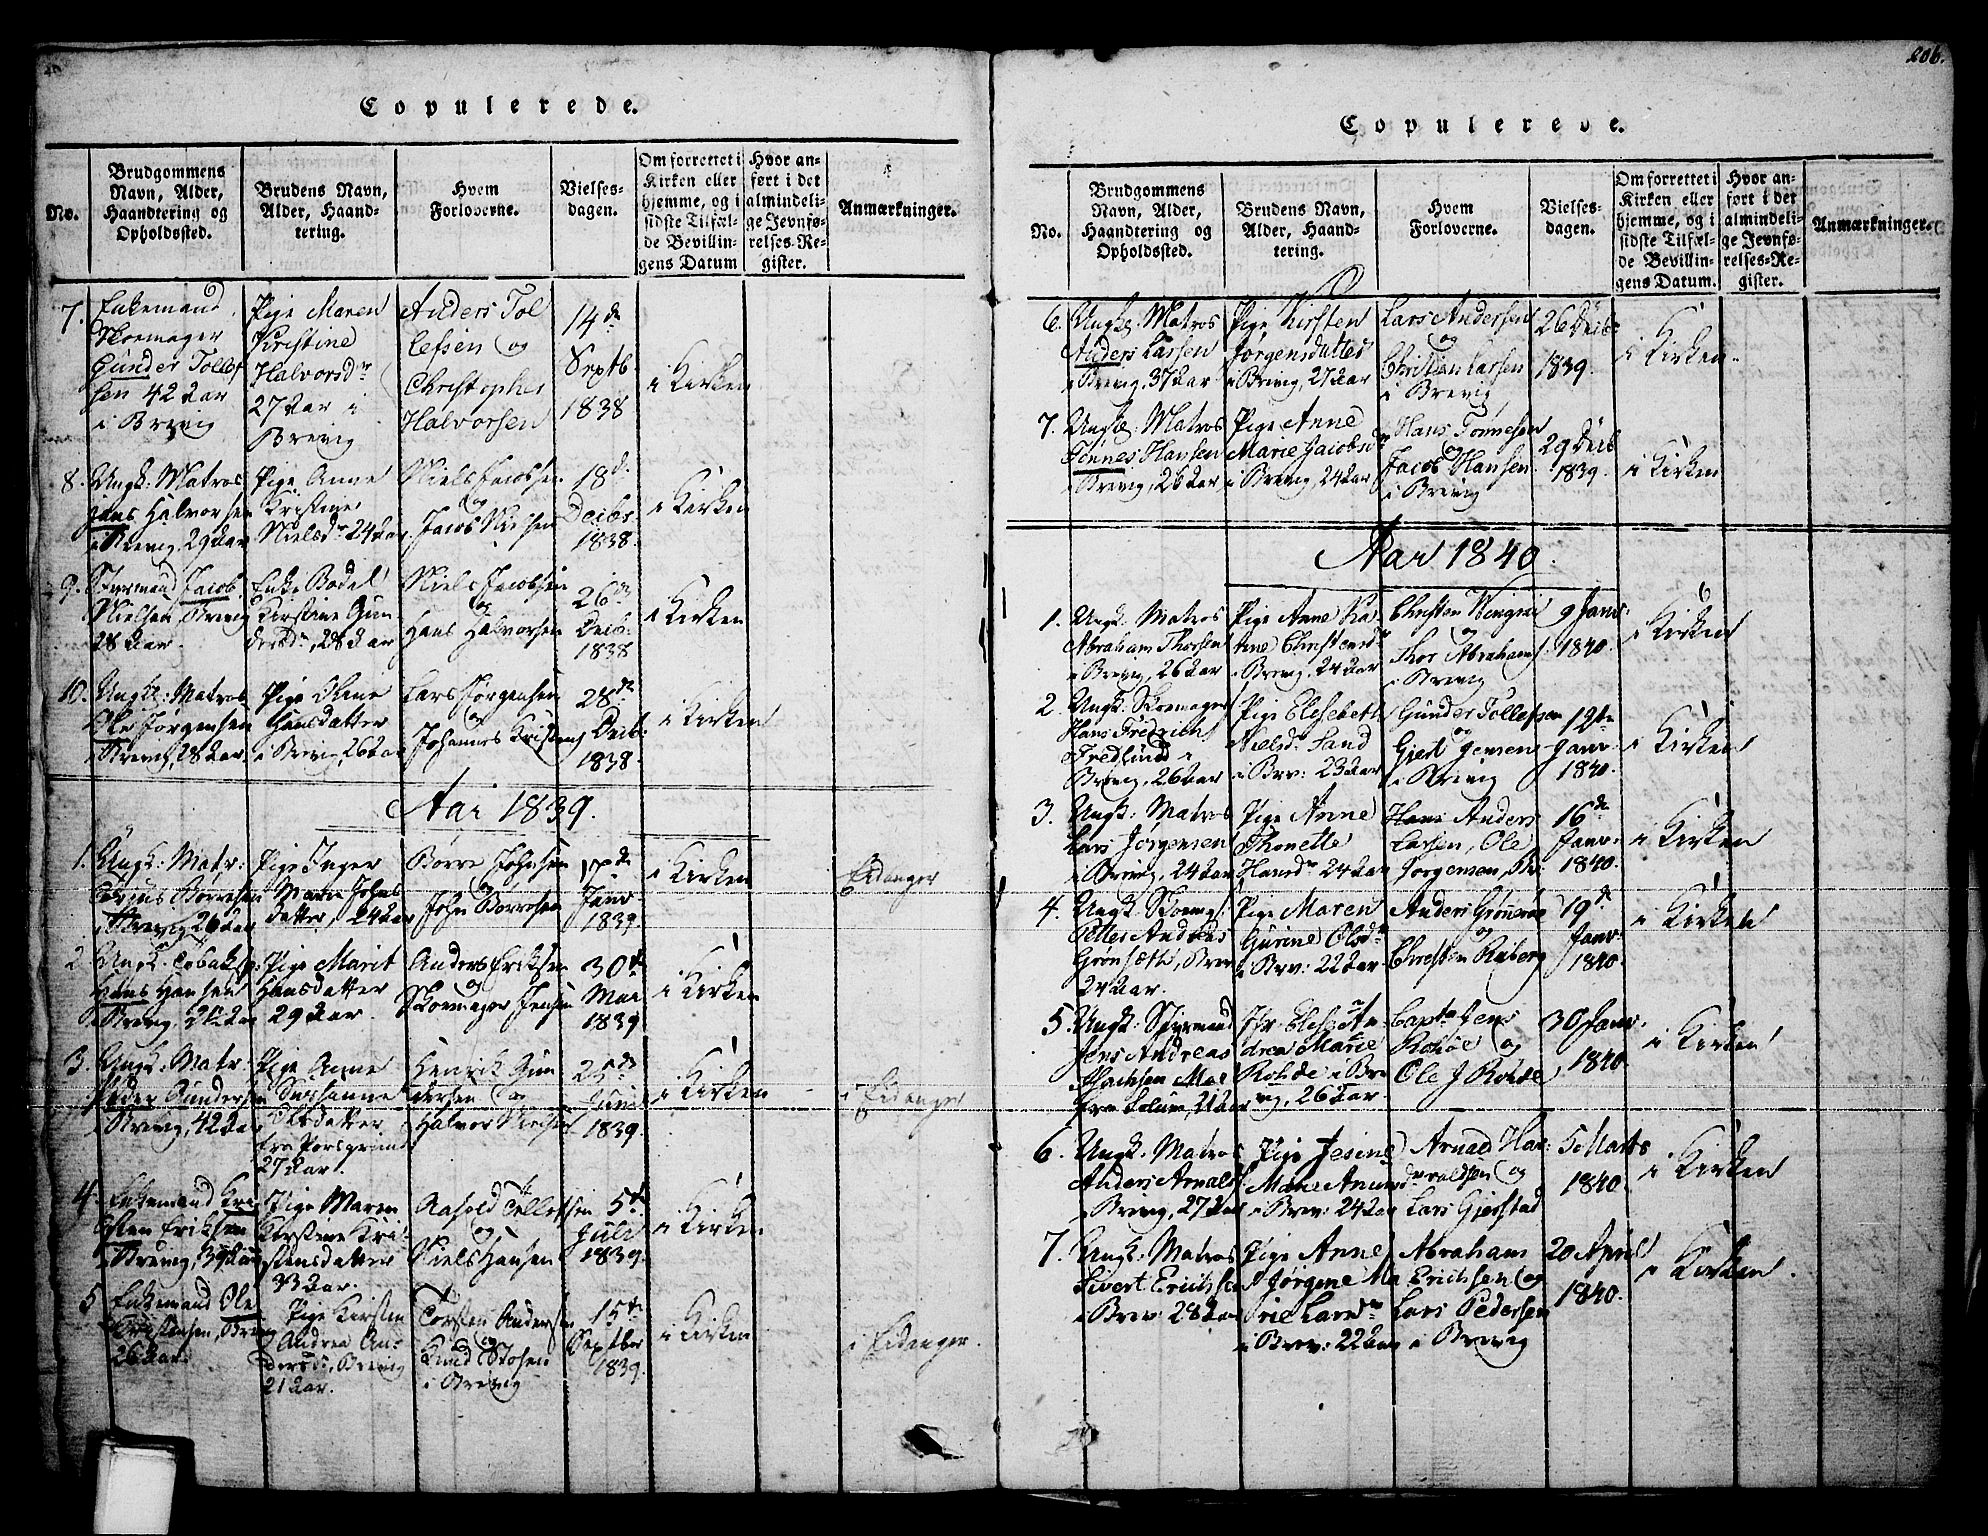 206.
Copulerede.
No.
Brudgommens
Navn, Alder,
Haandtering og
Opholdssted.
Brudens Navn,
Alder, Haand-
tering.
Hvem
Forloverne.
Vielses-
dagen.
Om forrettet i
Kirken eller
hjemme, og i
sidste Tilfæl-
de Bevillin-
gens Datum
Hvor an-
ført i det
almindeli-
ge Jevnfø-
relses-Re-
gister.
Anmærkninger.
7.
Enkemand
Skoemager
Gunder Tollef
sen 42 Aar
i Brevig
Pige Maren
Kirstine
Halvorsdr
27 Aar i
Brevig
Anders Tol
lefsen og
Christopher
Halvorsen
14de
Septb.
1838
i Kirken
8.
Ungk: Matros
Jens Halvorsen
i Brevig, 29 Aar
Pige Anne
Kirstine
Nielsdr 24 Aar.
Niels Jacobsen
og
Jacob Nielsen
18de
Decbr.
1838.
i Kirken
9.
Styrmand Jacob
Nielsen, Brevig
28 Aar.
Enke Bodel
Kirstane Gun
dersdr, 28 Aar
Niels Jacobsen
og
Hans Halvorsen
26de
Decb.
1838
i Kirken
10.
Ungk: Matros
Ole Jørgensen
i Brevig, 28 Aar.
Pige Olene
Hansdatter
i Brevig, 26 Aar
Lars Jørgensen
og
Johannes Kristens
28de
Decb:
1838.
i Kirken
Aar 1839.
1.
Ungk: Matr:
Børresen
i Brevig 26 Aar
Pige Inger
Maria Johns
datter, 24 Aar
Børre Johnsen
og
John Børresen
17de
Janr
1839.
i Kirken
Eidanger
2.
Ungk.
Hans Hansen
i Brevig,
Pige Marit
Hansdatter
29 Aar.
Anders Eriksen
og
Skoemager Jensen
30te
Mai
1839
i Kirken
3.
Ungk: Matr.
Peder Gundersen
i Brevig, 42 Aar
Pige Anne
Susanne
Olsdatter
fra Porsgrund
27 Aar.
Henrik Gun
dersen og
Halvor Nielsen
25de
Juni
1839.
i Kirken
i Eidanger
4.
Enkemand Kri
sten Eriksen
i Brevig, 39 Aar
Pige Maren
Kirstine Kri-
stensdatter
33 Aar.
Aasold Tellefsen
og
Niels Hansen
5te
Juli
1839.
i Kirken
5
Enkemand Ole
Kristensen, Brevig
26 Aar.
Pige Kirsten
Andrea An-
dersdr, Brevig
21 Aar.
Torsten Andersen
og
Knud Stohsen
i Brevig
15de
Septber
1839.
i Kirken
i Eidanger.
Copulerede.
No.
Brudgommens
Navn, Alder,
Haandtering og
Opholdssted.
Brudens Navn,
Alder, Haand-
tering.
Hvem
Forloverne.
Vielses-
dagen.
Om forrettet i
Kirken eller
hjemme, og i
sidste Tilfæl-
de Bevillin-
gens Datum.
Hvor an-
ført i det
almindeli-
ge Jevnfø-
relses-Re-
gister.
Anmærkninger.
6.
Ungk. Matros
Anders Larsen
i Brevig, 37 Aar
Pige Kirsten
Jørgensdatter
i Brevig, 27 Aar
Lars Andersen
og
Christian Larsen
i Brevig
26 Decb:
1839.
i Kirken.
7.
Ungk: Matros
Tønnes Hansen
i Brevig, 26 Aar
Pige Anne
Marie Jacobsdr
i Brevig, 24 Aar
Hans Tønnesen
og
Jacob Hansen
i Brevig
29 Decb
1839.
i Kirken
Aar 1840.
1.
Ungk. Matros
Abraham Thorsen
i Brevig, 26 Aar
Pige Anne Ka
trine Christensdr
i Brevig, 24 Aar
Christen
og
Thor Abrahams
i Brevig
9 Janr:
1840.
i Kirken
2.
Ungk. Skoemager
Hans Fredrich
Fredlund i
Brevig, 26 Aar
Pige Elesebeth
Nielsdr Sand
i Brv: 23 Aar
Gunder Tollefsen
og
Gjert Jensen
i Brevig
12te
Janr:
1840.
i Kirken
3.
Ungk: Matros
Lars Jørgensen
i Brevig, 24 Aar
Pige Anne
Thonette
Hansdr 24 Aar
Hans Anders
Larsen, Ole
Jørgensen, Br.
16de
Janr:
1840.
i Kirken
4.
Ungk. Skoemg:
Petter Andreas
Grønsæth, Brev
24 Aar.
Pige Maren
Gurine Olsdr
i Brv: 22 Aar
Anders
og
Christen Raberg
19de
Janr:
1840.
i Kirken
5.
Ungk: Styrmand
Jens Andreas
fra Solum, 21 Aar
Jfr Elesebet An-
drea Marie
Rohde i Bre
vig, 26 Aar.
Captn Jens
Rohde og
Ole J Rohde
30 Janr.
1840.
i Kirken
6.
Ungk. Matros
Anders Arnolds
i Brevig, 27 Aar
Pige Jesine
Marie Amunds
i Brev: 24 Aar
Arnold Har-
raldsen og
Lars Gjerstad
5 Marts
1840.
i Kirken
7.
Ungk. Matros
Sivert Erichsen
i Brev: 28 Aar
Pige Anne
Jørgine Ma
rie Larsdr
i Brev: 22 Aar
Abraham
Erichsen og
Lars Pedersen
i Brevig
20 April
1840.
i Kirken.